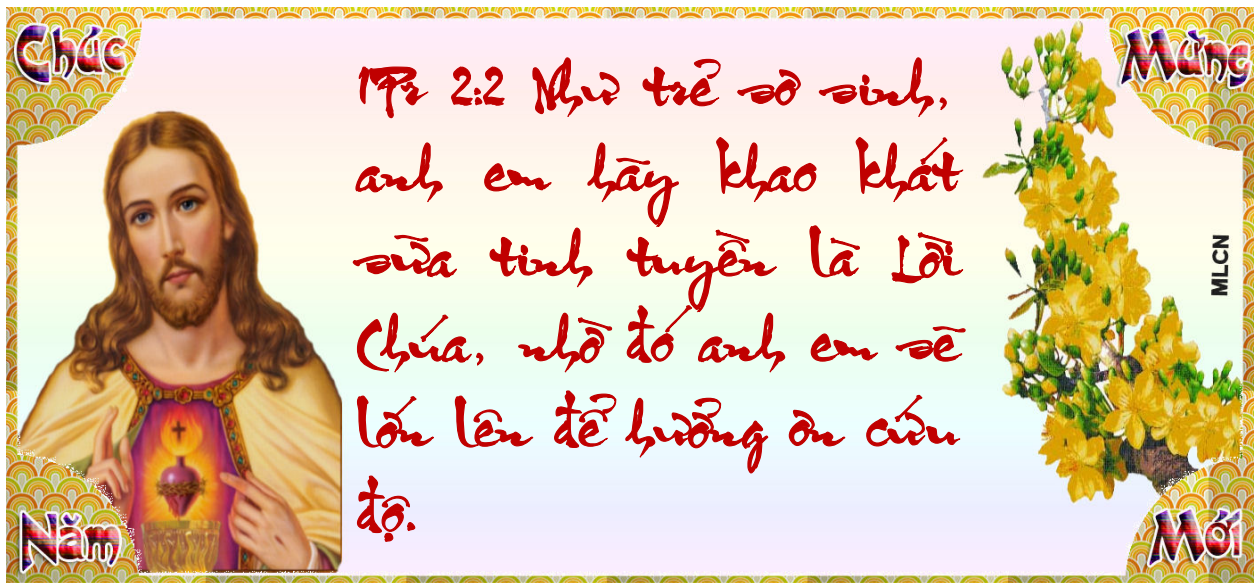 Chúc
Mừng
1Pr 2:2 Như trẻ sơ sinh,
anh em hãy khao khát
sữa tinh tuyền là Lời
Chúa, nhờ đó anh em sẽ
lớn lên để hưởng ơn cứu
độ.
MLCN
Năm
Mới